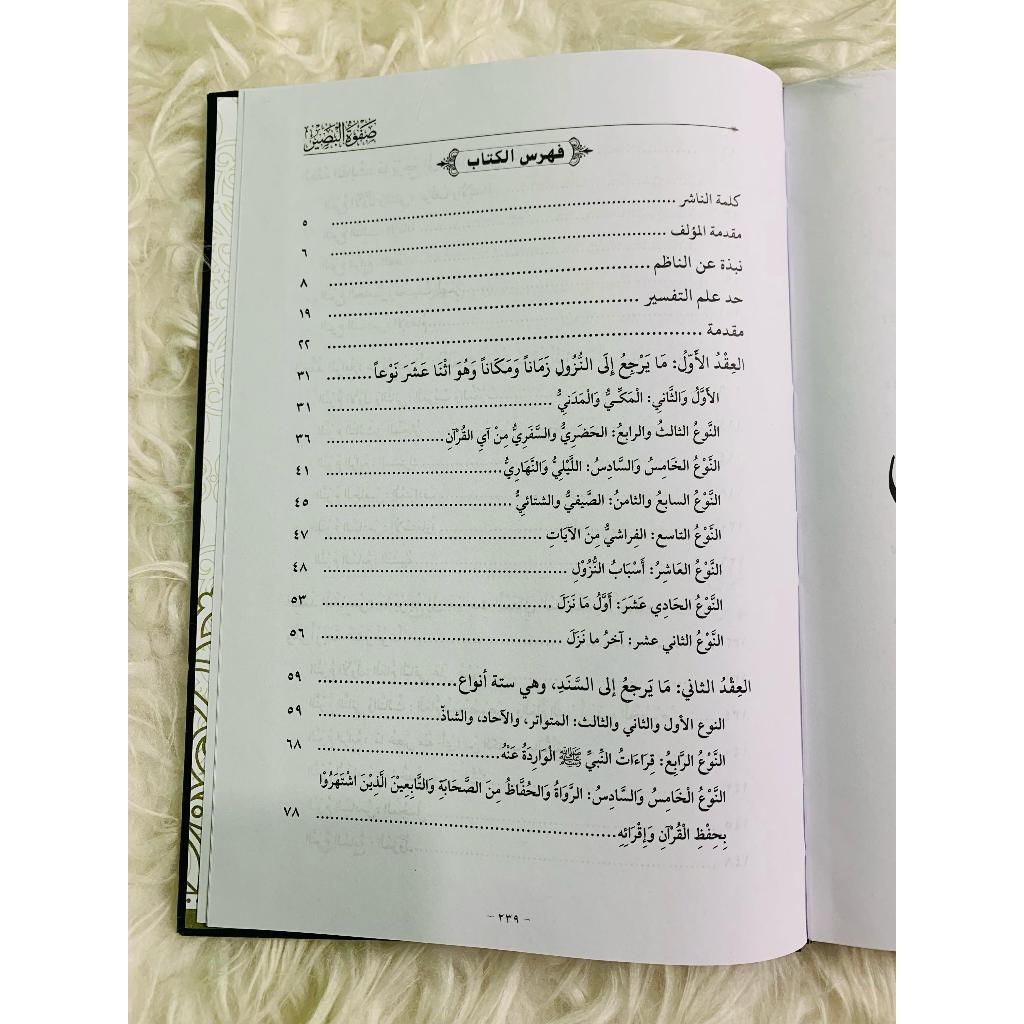 صَفْوَةُ التَّفْسِيْرِ
فهرس الكتاب
كلمة الناشر ........ ٥
مقدمة المؤلف ........ ٦
نبذة عن الناظم ........ ٨
حد علم التفسير ........ ١٩
مقدمة ........ ٢٢
العِقْدُ الأَوَّلُ: مَا يَرْجِعُ إِلَى النُّزُولِ زَمَاناً وَمَكَاناً وَهُوَ اثْنَا عَشَرَ نَوْعاً ........ ٣١
الأَوَّلُ وَالثَّانِي: الْمَكِّيُّ وَالْمَدَنِيُّ ........ ٣١
النَّوْعُ الثالثُ والرابعُ: الحَضَرِيُّ والسَّفَرِيُّ مِنْ آيِ القُرْآنِ ........ ٣٦
النَّوْعُ الخَامِسُ وَالسَّادِسُ: اللَّيْلِيُّ وَالنَّهَارِيُّ ........ ٤١
النَّوْعُ السابعُ والثامنُ: الصَّيفيُّ والشتائيُّ ........ ٤٥
النَّوْعُ التاسع: الفِراشيُّ مِنَ الآيَاتِ ........ ٤٧
النَّوْعُ العَاشِرُ: أَسْبَابُ النُّزُوْلِ ........ ٤٨
النَّوْعُ الحَادِي عَشَرَ: أَوَّلُ مَا نَزَلَ ........ ٥٣
النَّوْعُ الثاني عشر: آخرُ ما نَزَلَ ........ ٥٦
العِقْدُ الثاني: مَا يَرجعُ إلى السَّنَدِ، وهي ستة أنواع ........ ٥٩
النوع الأول والثاني والثالث: المتواتر، والآحاد، والشاذّ ........ ٥٩
النَّوْعُ الرَّابِعُ: قِرَاءَاتُ النَّبِيِّ ﷺ الْوَارِدَةُ عَنْهُ ........ ٦٨
النَّوْعُ الْخَامِسُ وَالسَّادِسُ: الرُّوَاةُ وَالحُفَّاظُ مِنَ الصَّحَابَةِ وَالتَّابِعِيْنَ الَّذِيْنَ اشْتَهَرُوْا
بِحِفْظِ الْقُرْآنِ وَإِقْرَائِهِ ........ ٧٨
- ٢٣٩ -